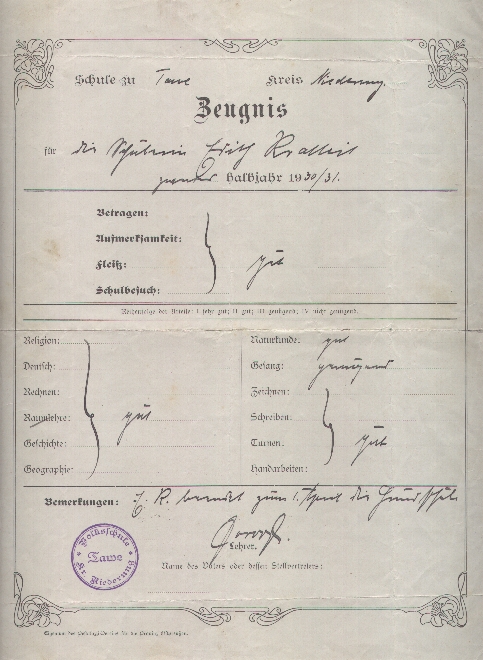 Schule zu Tawe Kreis Niederung.
Zeugnis
für die Schülerin Edith
zweites Halbjahr 1930/31.
Betragen:
Aufmerksamkeit:
Fleiß: gut
Schulbesuch:
Reihenfolge der Urteile: I sehr gut; II gut; III genügend; IV nicht genügend.
Religion:
Deutsch:
Rechnen:
Raumlehre: gut
Geschichte:
Geographie:
Naturkunde: gut
Gesang: genügend
Zeichnen:
Schreiben:
Turnen: gut
Handarbeiten:
Bemerkungen: E. K. beendet zum 1. April die
Lehrer.
Volksschule
Tawe
Kr. Niederung
Name des Vaters oder dessen Stellvertreters: